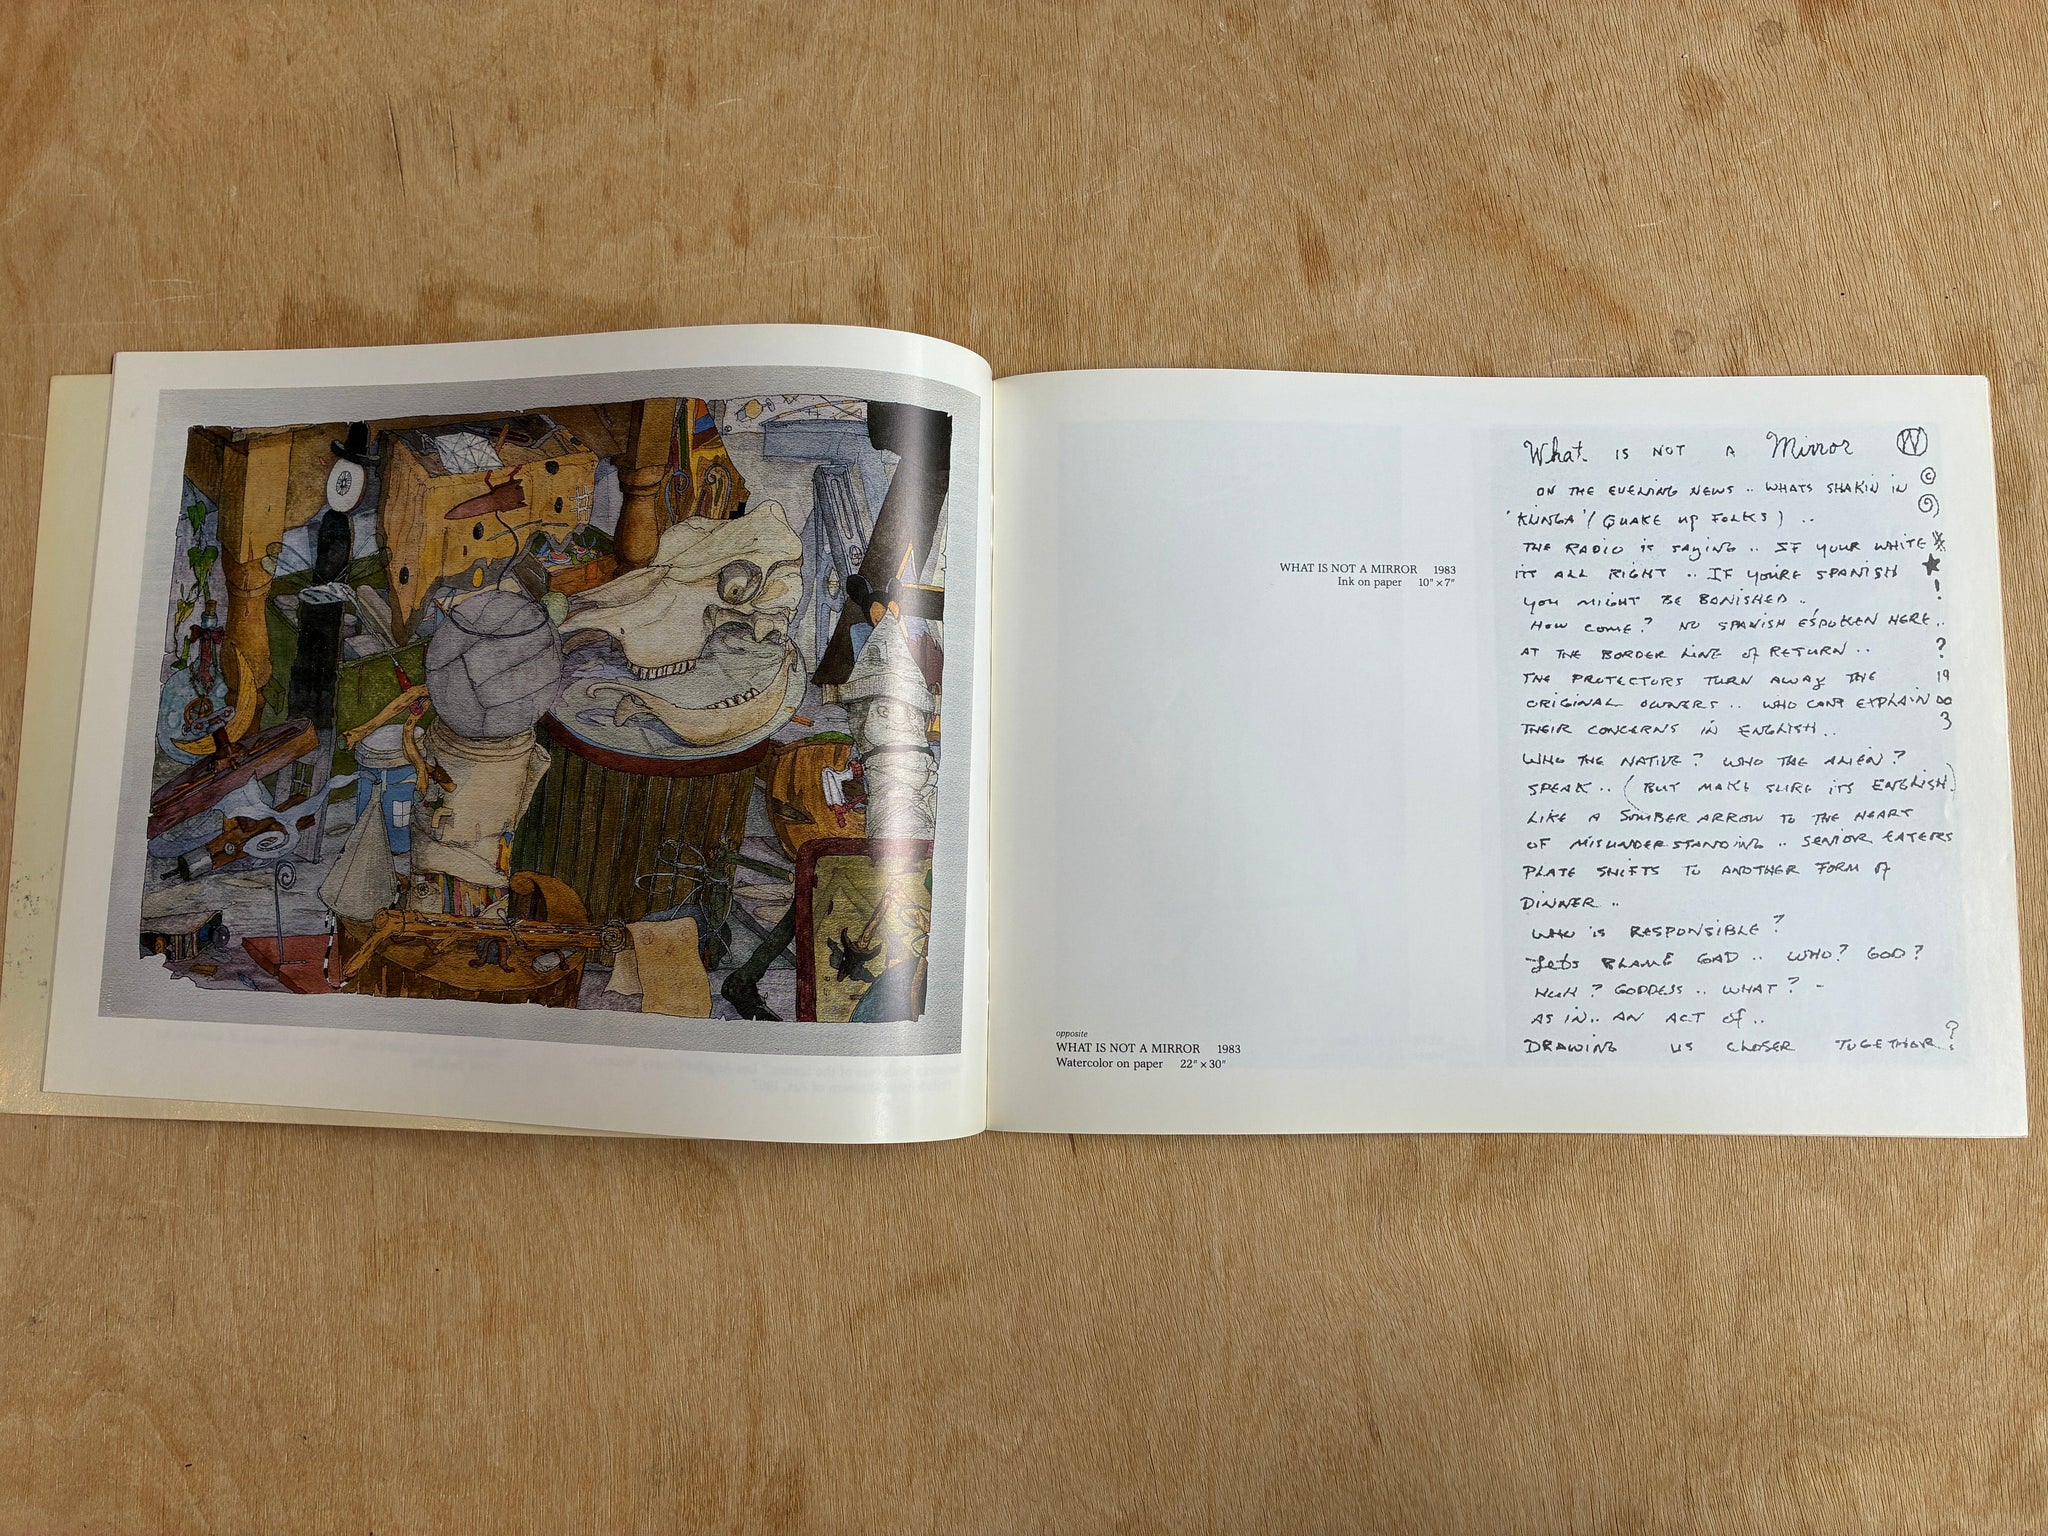 WHAT IS NOT A MIRROR 1983
Ink on paper 10" × 7"
opposite
WHAT IS NOT A MIRROR 1983
Watercolor on paper 22" × 30"
What IS NOT A Mirror W
ON THE EVENING NEWS .. WHATS SHAKIN IN ©
(QUAKE up FOLKS) ..
THE RADIO is saying .. IF YOUR WHITE
its ALL RIGHT .. IF YOU'RE SPANISH ★
you MIGHT BE BANISHED .. !
HOW COME? NO SPANISH E'SPOKEN HERE ..
AT THE BORDER LINE of RETURN .. ?
THE PROTECTORS TURN AWAY THE 19
ORIGINAL OWNERS .. WHO CANT EXPLAIN
THEIR CONCERNS IN ENGLISH .. 3
WHO THE NATIVE? WHO THE ALIEN?
SPEAK .. (BUT MAKE SURE ITS ENGLISH)
LIKE A SOMBER ARROW TO THE HEART
OF MISUNDERSTANDING .. SENIOR EATERS
PLATE SHIFTS TO ANOTHER FORM of
DINNER ..
WHO is RESPONSIBLE?
Lets BLAME GAD .. WHO? GOD?
HUH? GODDESS .. WHAT? -
AS IN .. AN ACT of ..
DRAWING US CLOSER TOGETHOR?